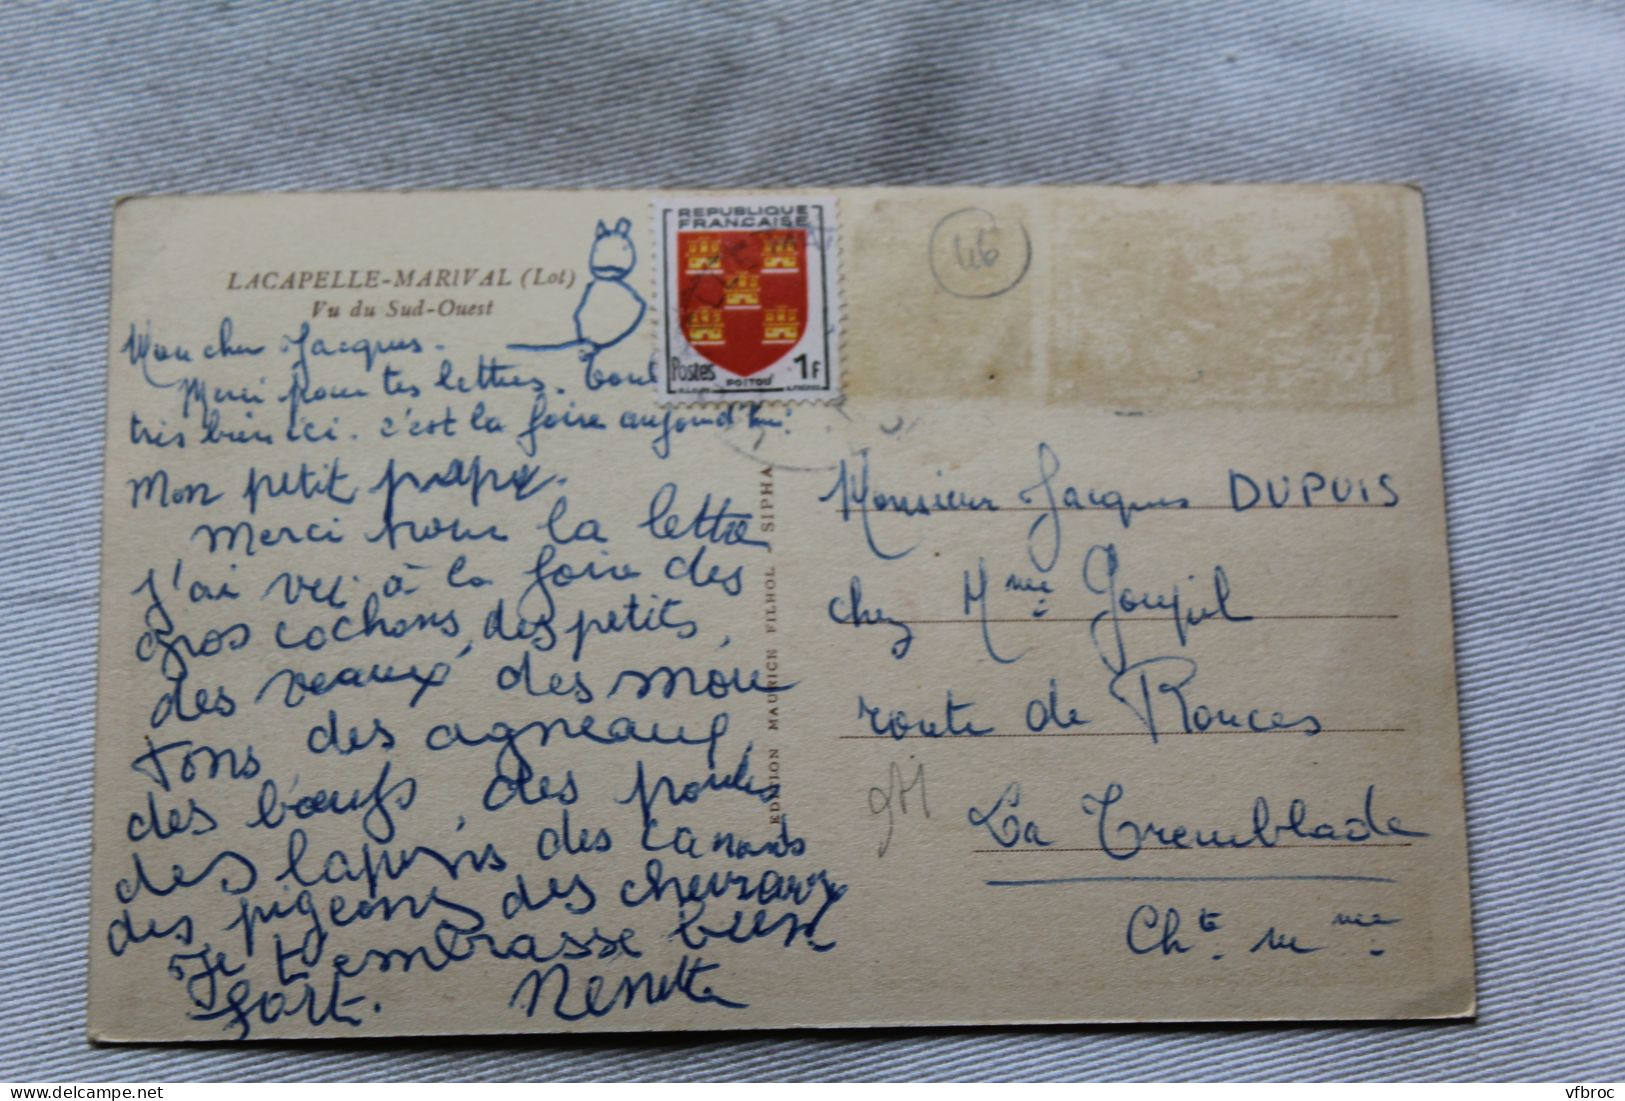 LACAPELLE-MARIVAL (Lot)
Vu du Sud-Ouest
Mon cher Jacques.
Merci pour tes lettres. Tout
très bien ici. c'est la foire aujourd'hui.
Mon petit papa.
Merci pour la lettre
J'ai vu à la foire des
gros cochons, des petits,
des veaux, des mou
tons des agneaux,
des bœufs, des poules
des lapins des canards
des pigeons des chevraux
Je t'embrasse bien
fort. Nenette
EDITION MAURICE FILHOL SIPHA
REPUBLIQUE
FRANÇAISE
Postes 1F
POITOU
46
Monsieur Jacques DUPUIS
chez Mme Goupil
route de Ronces
La Tremblade
Chte mme
vfbroc